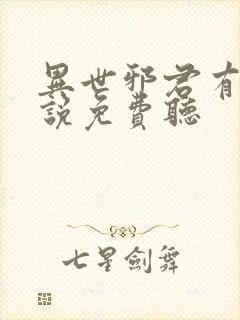 異世邪君有
說免費聽
七星劍舞